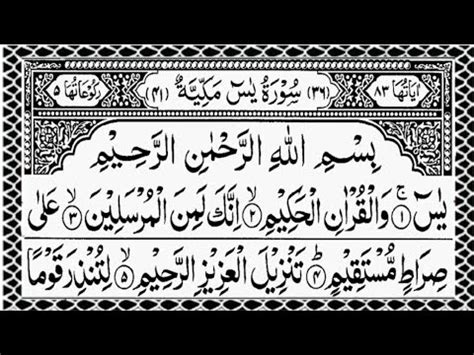 اٰيَاتُهَا ٨٣ (٣٦) سُوْرَةُ يٰسٓ مَكِّيَّةٌ (٤١) رُكُوْعَاتُهَا ٥
بِسْمِ اللهِ الرَّحْمٰنِ الرَّحِيْمِ
يٰسٓ ۚ ﴿١﴾ وَالْقُرْاٰنِ الْحَكِيْمِ ۙ ﴿٢﴾ اِنَّكَ لَمِنَ الْمُرْسَلِيْنَ ۙ ﴿٣﴾ عَلٰى
صِرَاطٍ مُّسْتَقِيْمٍ ؕ ﴿٤﴾ تَنْزِيْلَ الْعَزِيْزِ الرَّحِيْمِ ۙ ﴿٥﴾ لِتُنْذِرَ قَوْمًا